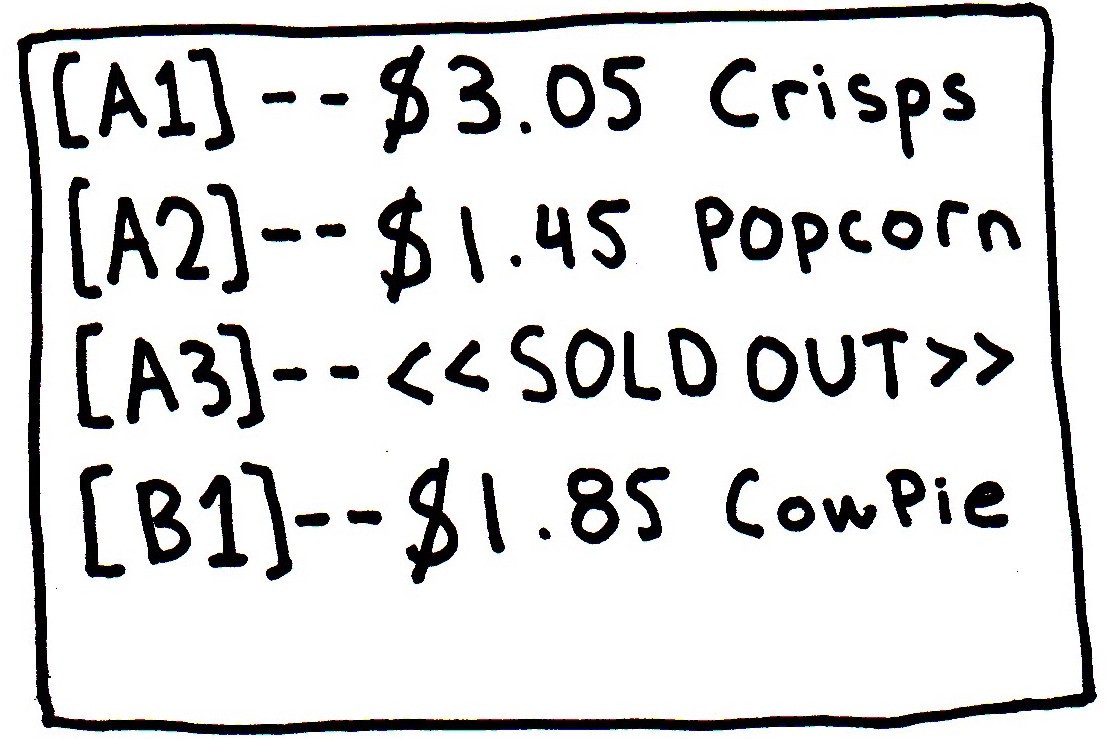 [A1]--$3.05 Crisps
[A2]--$1.45 Popcorn
[A3]--<<SOLD OUT>>
[B1]--$1.85 CowPie